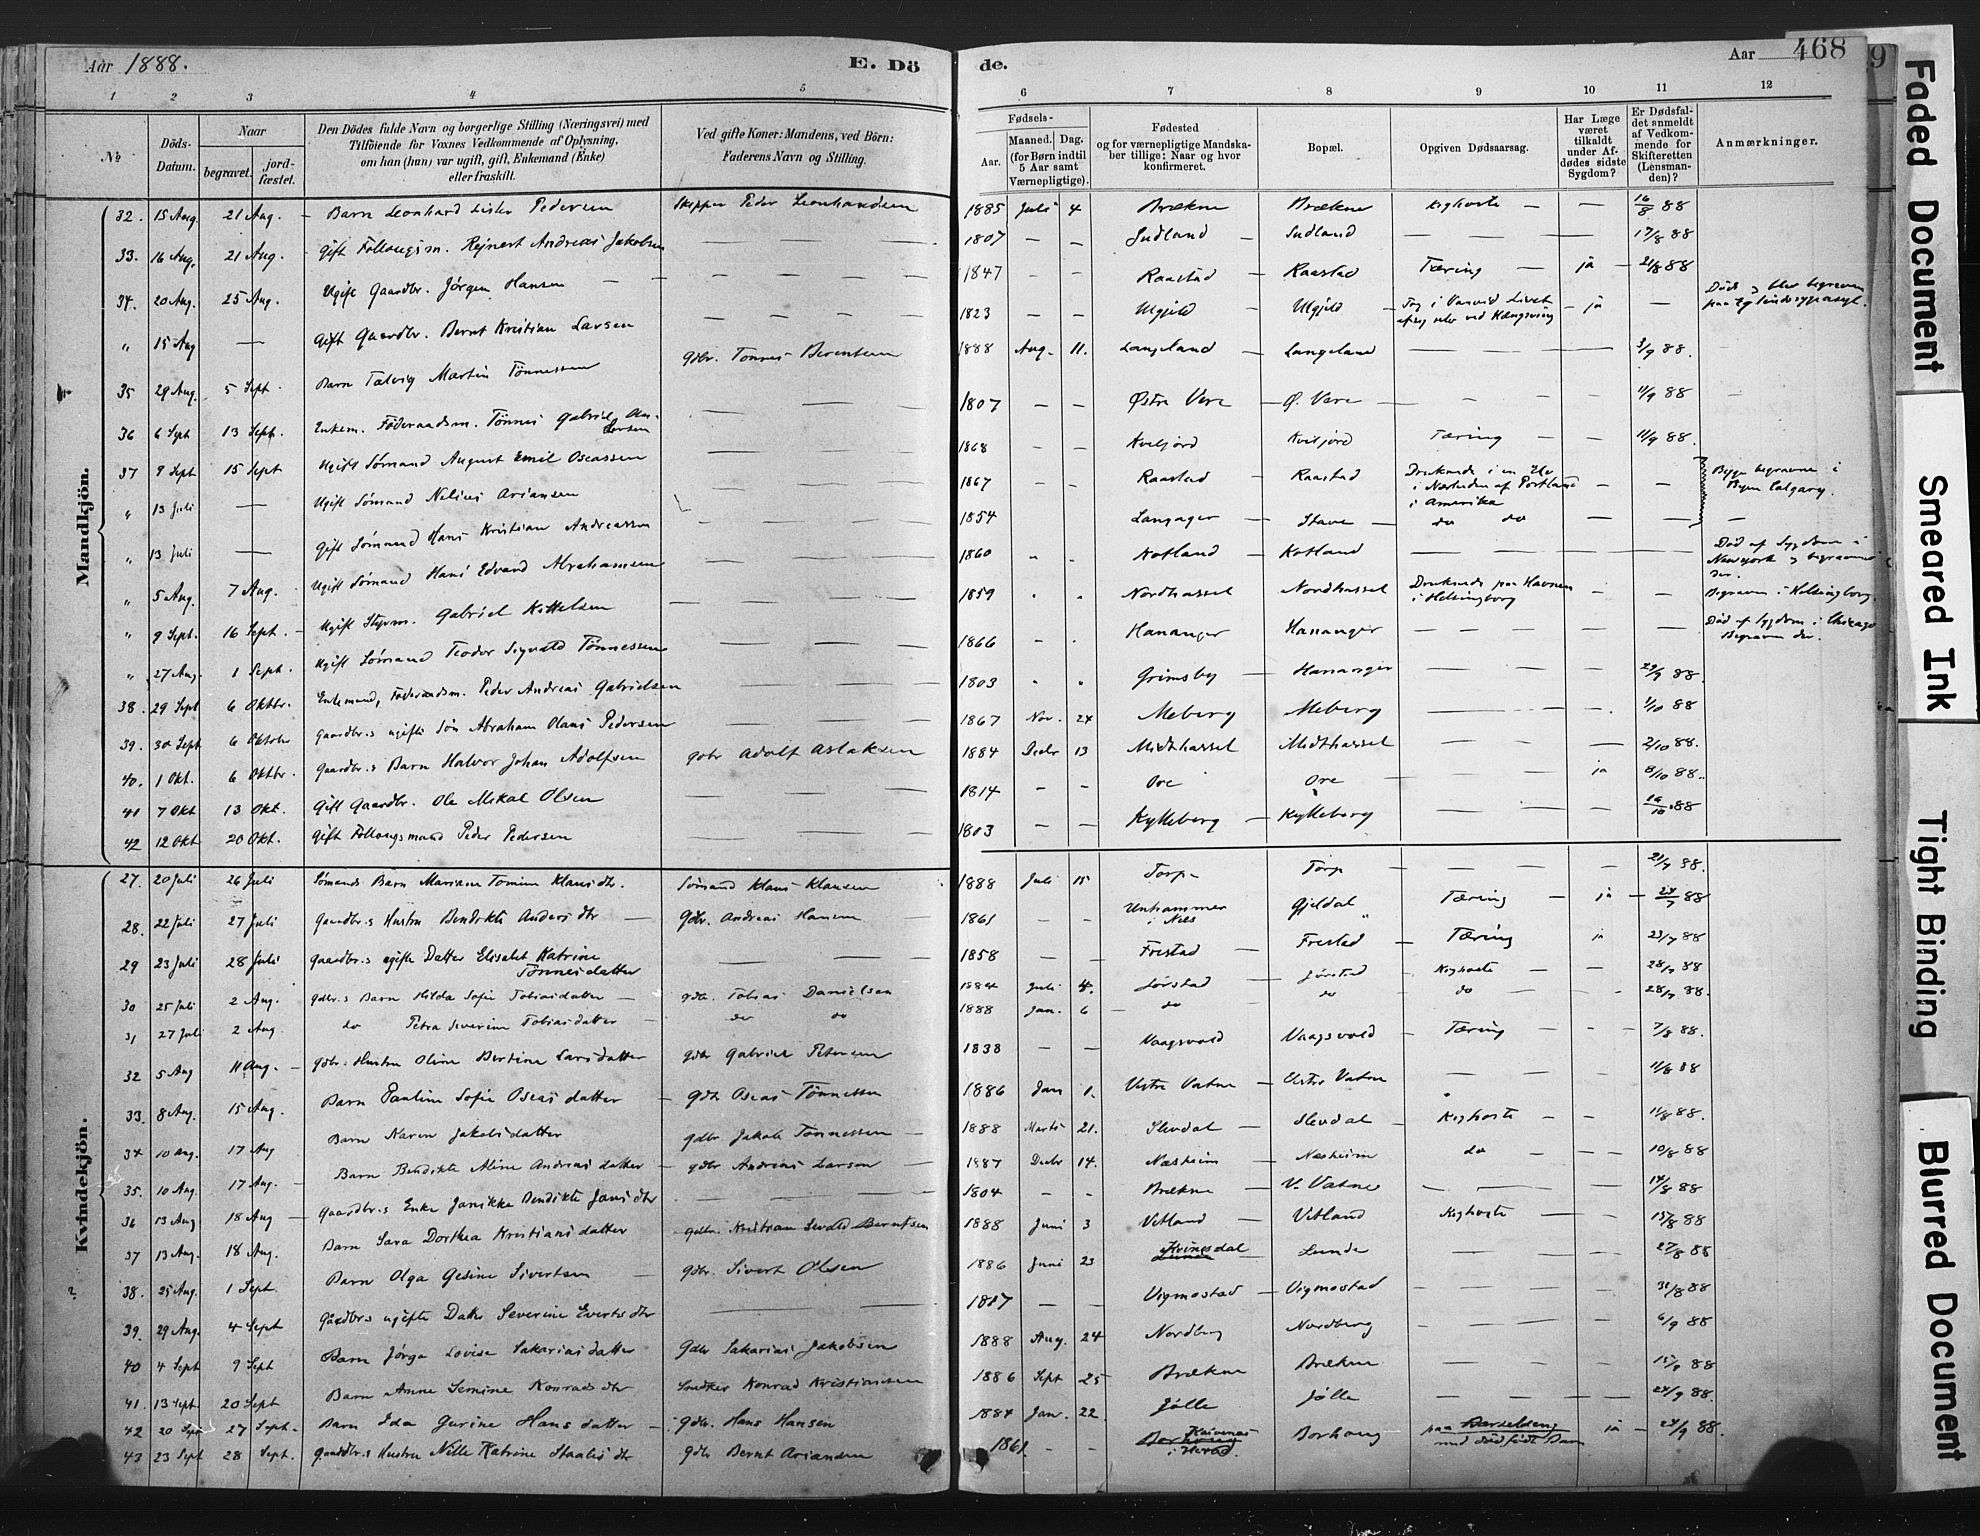 Aar 1888. E. Dö
de. Aar 468
1 2 3 4 5
6 7 8 9 10 11 12
№ Döds-Datum. Naar begravet. jordfæstet. Den Dödes fulde Navn og borgerlige Stilling (Næringsvei) med Tilföiende for Voxnes Vedkommende af Oplysning, om han (hun) var ugift, gift, Enkemand (Enke) eller fraskilt. Ved gifte Koner: Mandens, ved Börn: Faderens Navn og Stilling.
Fødsels- Aar. Maaned. Dag. (for Børn indtil 5 Aar samt Værnepligtige). Fødested og for værnepligtige Mandskaber tillige: Naar og hvor konfirmeret. Bopæl. Opgiven Dødsaarsag. Har Læge været tilkaldt under Afdødes sidste Sygdom? Er Dødsfaldet anmeldt af Vedkommende for Skifteretten (Lensmanden)? Anmærkninger.
Mandkjön.
32. 15 Aug. 21 Aug. - Barn Leonhard Lister Pedersen Skipper Peder Leonhardsen 1885 Juli 4 Brækne Brækne Kighoste - - 16/8 88
33. 16 Aug. 21 Aug. - Gift Follaugsm. Rejnert Andreas Jakobsen 1807 - - Sudland - Sudland 17/8 88
34. 20 Aug. 25 Aug. Ugift Gaardbr. Jörgen Hansen 1847 - - Raastad - Raastad Tæring - ja - 21/8 88
" 15 Aug - Gift Gaardbr. Bernt Kristian Larsen 1823 - - Ulgjeld - Ulgjeld - Tog i Vanvid Livet af sig selv ved Hængning - ja - Död og blev begraven paa Eg Sindssygeasyl.
35 29 Aug. 5 Sept. Barn Talvig Martin Tönnessen Gdbr. Tönnes Berentsen 1888 Aug. 11. Langeland - Langeland 3/9 88.
36 6 Sept 13 Sept. Enkem. Föderaadsm. Tönnes Gabriel Larsen 1807 - - Østre Vere - Ø. Vere 11/9 88
37 9 Sept 15 Sept Ugift Sömand August Emil Oseassen 1868 - - Kviljord Kviljord Tæring - - 11/9 88.
" 13 Juli - Ugift Sömand Nelius Ariansen 1867 - - Raastad - Raastad Druknede i en Elv i Nærheden af Portland i Amerika - - Begge begravne i Byen Calgary.
" 13 Juli - Gift Sömand Hans Kristian Andreassen 1854 Langager - Stave - do do -
" 5 Aug. 7 Aug. Ugift Sömand Hans Edvard Abrahamsen 1860 Kotland - Kotland Död af Sygdom i Newyork og begraven der.
" 9 Sept. 16 Sept. - Ugift Styrm. Gabriel Kittelsen 1859 Nordhassel Nordhassel Druknede paa Havnen i Helsingborg - - Begraven i Helsingborg.
" 27 Aug. 1 Sept. Ugift Sömand Teodor Sigvald Tönnessen 1866 Hananger Hananger Död af Sygdom i Chicago Begraven der.
38. 29 Sept 6 Oktbr. Enkemand, Föderaadsm. Peder Andreas Gabrielsen 1803 Grimsby - Hananger 29/9 88.
39. 30 Sept 6 Oktober Gaardbr.s ugifte Sön Abraham Olaus Pedersen 1867 Nov. 24 Meberg Meberg 1/10 88
40. 1 Okt. 6 Oktbr. Gaardbr.s Barn Halvor Johan Adolfsen Gdbr Adolf Aslaksen 1884 Decbr 13 Midthassel Midthassel 2/10 88.
41 7 Okt 13 Okt. Gift Gaardbr. Ole Mikal Olsen 1814 - - Ore Ore ja 8/10 88.
42 12 Okt 20 Okt. Gift Follaugsmand Peder Pedersen 1803 - - Kylleberg - Kylleberg 16/10 88
Kvindekjön.
27. 20 Juli 26 Juli Sömands Barn Mariane Tomine Klausdtr. Sömand Klaus Klausen 1888 Juli 15 Torp - Torp 21/7 88.
28. 22 Juli 27 Juli Gaardbr.s Hustru Bendikte Andersdtr Gdbr. Andreas Hansen 1861 - - Unhammer i Næs Gjeldal Tæring - ja - 24/7 88
29 23 Juli 28 Juli Gaardbr.s ugifte Datter Elisabet Katrine Tönnesdatter 1858 - - Frestad - Frestad - Tæring ja 23/7 88
30 25 Juli 2 Aug. Gdbr.s Barn Hilda Sofie Tobiasdatter Gdbr. Tobias Danielsen 1884 Juli 4. Jörstad - Jörstad Kighoste - - 28/7 88
31 27 Juli 2 Aug. do Petra Severine Tobiasdatter do do 1888 Jan. 6 - do do do 28/7 88.
32 5 Aug 11 Aug. - Gdbr.s Hustru Oline Bertine Larsdatter Gdbr Gabriel Petersen 1838 - - Vaagsvold Vaagsvold - Tæring - - 7/8 88.
33. 8 Aug. 15 Aug. Barn Pauline Sofie Oseasdatter - Gdbr Oseas Tönnessen 1886 Jan 1. Vestre Vatne - Vestre Vatne 11/8 88
34 10 Aug. 17 Aug Barn Karen Jakobsdatter Gdbr Jakob Tönnessen 1888 Marts 21. Slevdal - Slevdal - Kighoste - - 11/8 88.
35. 10 Aug. 17 Aug. - Barn Bendikte Aline Andreasdatter - Gdbr Andreas Larsen 1887 Decbr 14. Næsheim - Næsheim do - - - 10/8 88
36 13 Aug 18 Aug - Gaardbr.s Enke Janikke Bendikte Jansdtr 1804 - - Brækne - V. Vatne 14/8 88
37 13 Aug. 18 Aug. Barn Sara Dorthea Kristiansdatter Gdbr. Kristian Sevald Berntsen 1888 Juni 3 Vetland - Vetland Kighoste - - 15/8 88
38. 25 Aug. 1 Sept. Barn Olga Gesine Sivertsen Gdbr. Sivert Olsen 1886 Juni 23 Kvinesdal Lunde 27/8 88
39. 29 Aug. 4 Sept Gaardbr.s ugifte Datter Severine Evertsdtr 1817 - - Vigmostad - Vigmostad 30/8 88
40 4 Sept 9 Sept Barn Jörga Lovise Sakariasdatter Gdbr Sakarias Jakobsen 1888 Aug. 24 Nordberg Nordberg 6/9 88
41. 13 Sept 20 Sept Barn Anne Semine Konradsdtr Snedker Konrad Kristiansen 1886 Sept 25 Brækne Brækne 15/9 88
42 20 Sept 27 Sept. Barn Ida Gurine Hansdatter - Gdbr. Hans Hansen 1884 Jan. 22. Jölle Jölle 24/9 88.
43 23 Sept 28 Sept. Gaardbr.s Hustru Nille Katrine Staalesdtr Gdbr Bernt Ariansen 1861. - - i Herad. Borhaug paa Barselseng med dödfödt Barn ja - 24/9 88.
Faded Document
Smeared Ink
Tight Binding
Blurred Document